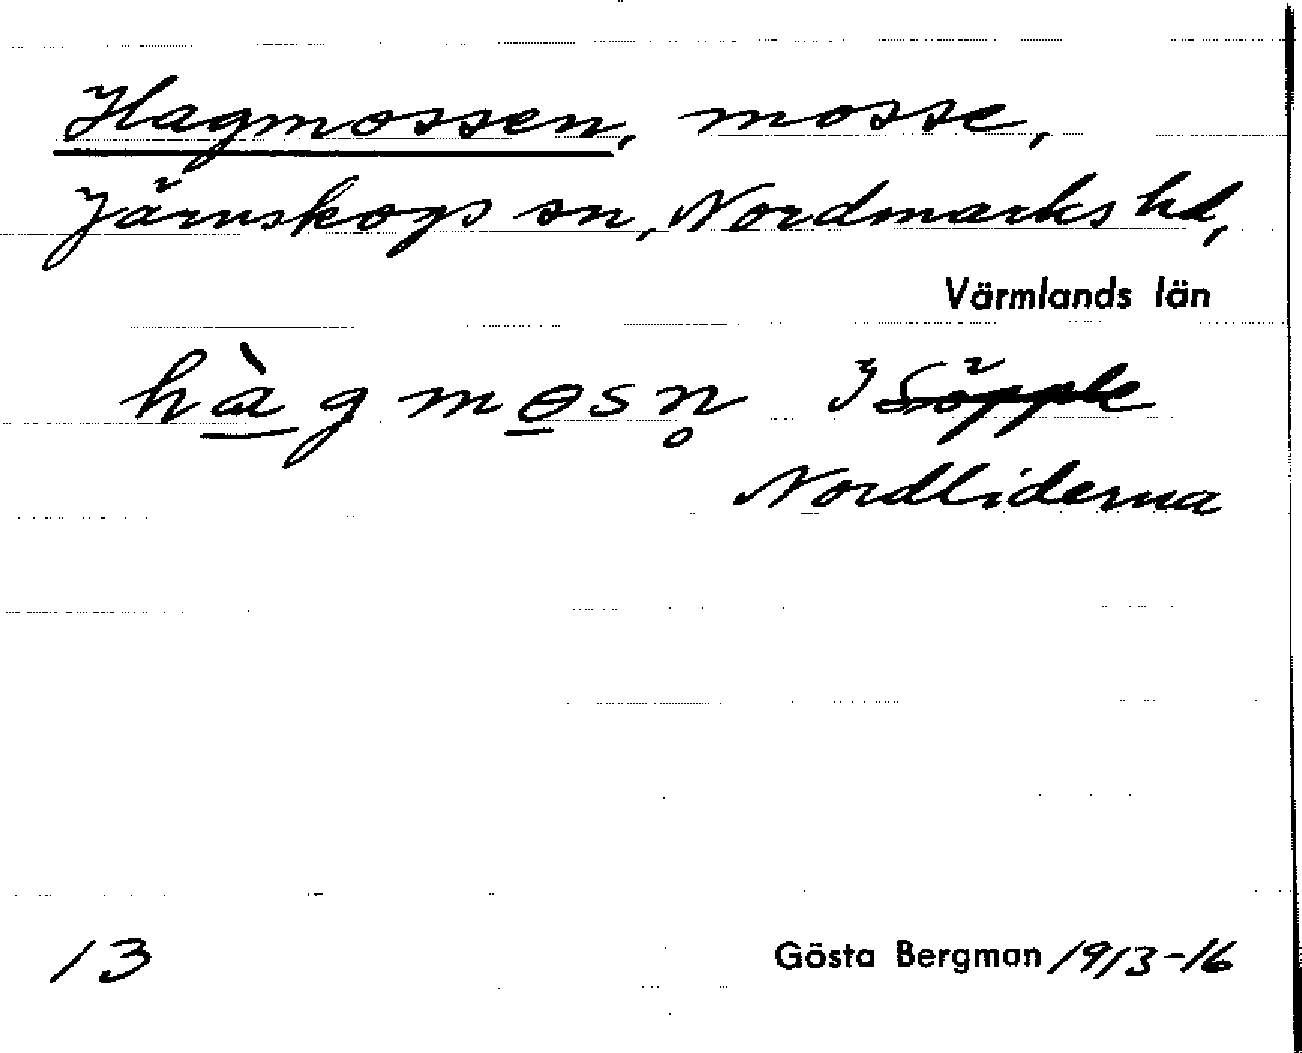 Hagmossen, mosse,
Järnskogs sn, Nordmarks hd,
Värmlands län
hàgmɵsn̥ I Söpple
Nordliderna
13 Gösta Bergman 1913-16